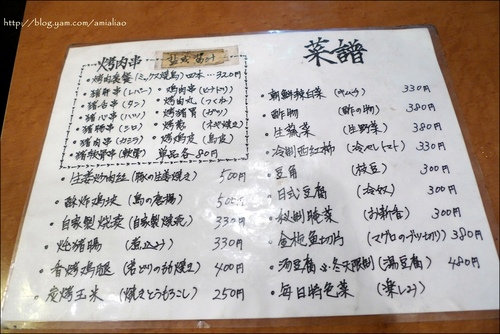 http://blog.yam.com/amialiao
菜譜
烤肉串
烤肉套餐(ミックス焼鳥)四本…320円
豬肝串(レバー)
烤肉串(ヒナトリ)
豬舌串(タン)
烤肉丸(つくね)
豬心串(ハツ)
豬腸串(シロ)
豬肉串(カシラ)
烤鶏皮(鳥皮)
豬軟骨串(軟骨)
單品各80円
生姜炒肉絲(豚の生姜焼き) 500円
酥炸鶏塊(鳥の唐揚) 500円
自家製燒菜(自家製焼売) 330円
炖豬腸(煮込み) 330円
香烤鶏腿(若どりの油焼き) 400円
炭烤玉米(焼きとうもろこし) 250円
朝鮮辣白菜(キムチ) 330円
酢物(酢の物) 380円
生蔬菜(生野菜) 380円
冷制西紅柿(冷やしトマト) 330円
豆角(枝豆) 300円
日式豆腐(冷奴) 300円
秘制腌菜(お新香) 300円
金槍魚切片(マグロのブツ切り) 380円
湯豆腐(湯豆腐) 480円
毎日特色菜(楽しみ)